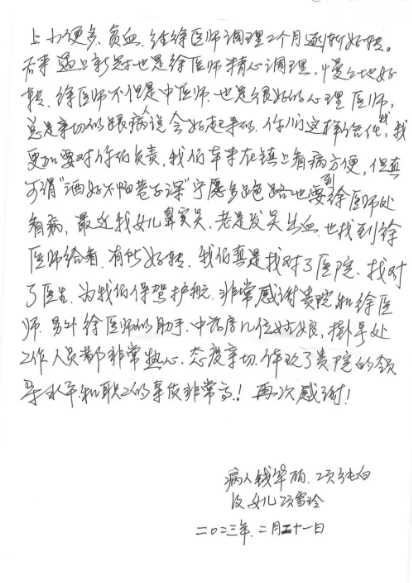 上火便多、贫血、经徐医师调理2个月逐渐好转。
后来遇上新冠也是徐医师精心调理，慢慢地好
转。徐医师不但是中医师.也是很好的心理医师，
总是亲切的跟病人说会好起来的.你们这样信任，我
更加要对你们负责，我们本来在镇上看病方便，但真
可谓"酒好不怕巷子深"宁愿多跑路也要到徐医师处
看病，最近我女儿鼻窦炎.老是发炎出血.也找到徐
医师给看.有所好转.我们真是找对了医院.找对
了医生.为我们保驾护航.非常感谢贵院和徐医
师.另外徐医师的助手.中药房几位姑娘，挂号处
工作人员都非常热心.态度亲切.体现了贵院的领
导水平和职工的素质非常高！再次感谢！
病人钱翠丽、项纯白
及女儿项雪玲
二0二三年.二月二十一日